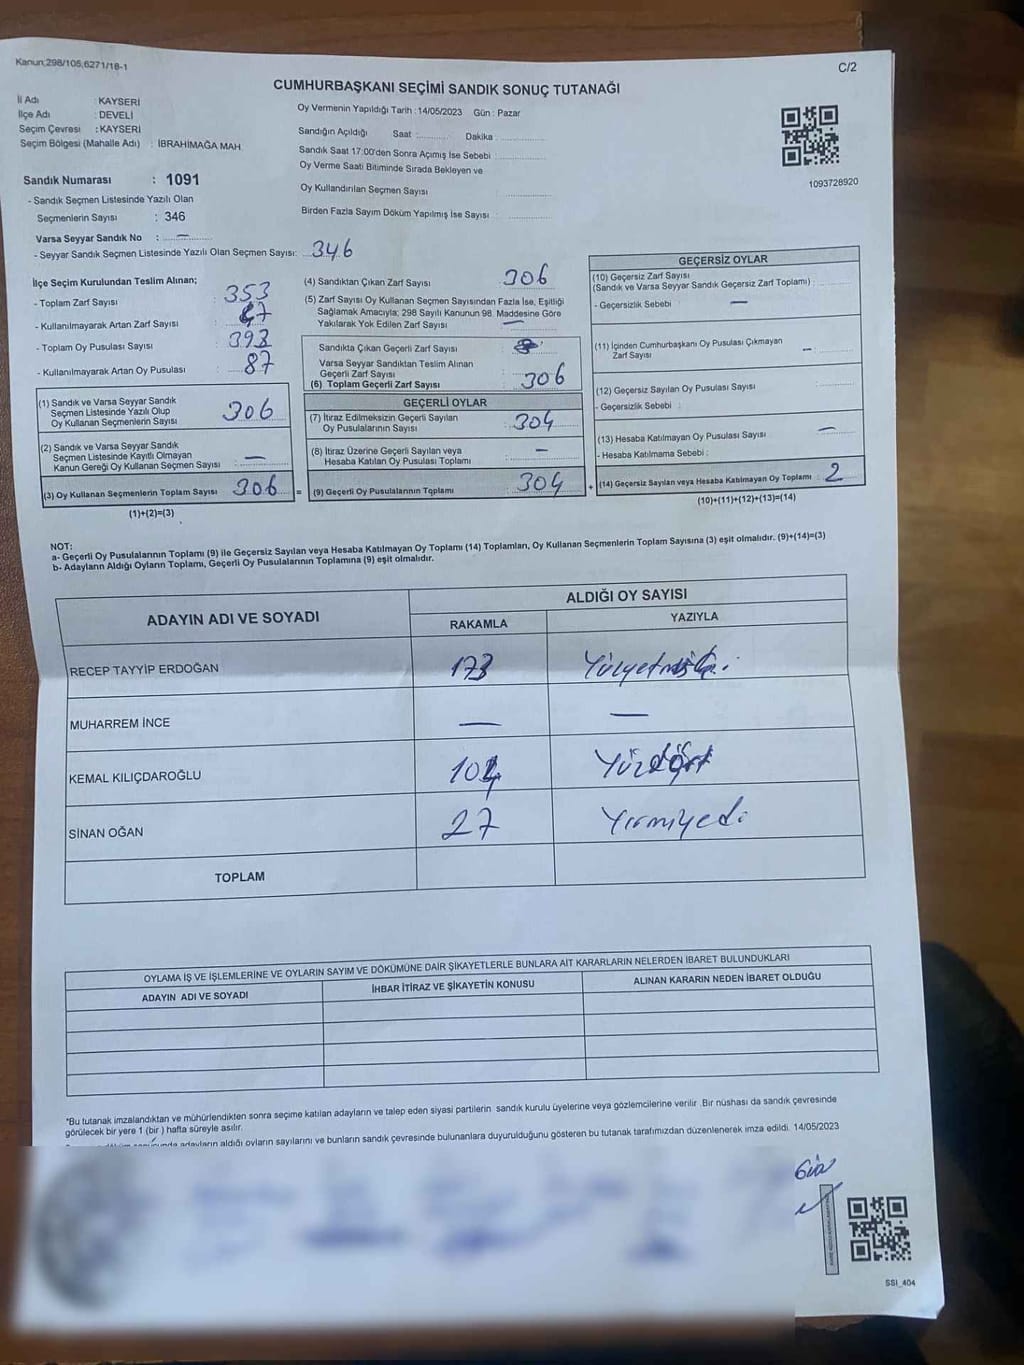 Kanun;298/105,6271/18-1
C/2
CUMHURBAŞKANI SEÇİMİ SANDIK SONUÇ TUTANAĞI
İl Adı : KAYSERİ
İlçe Adı : DEVELİ
Seçim Çevresi : KAYSERİ
Seçim Bölgesi (Mahalle Adı) : İBRAHİMAĞA MAH
Oy Vermenin Yapıldığı Tarih : 14/05/2023 Gün : Pazar
Sandığın Açıldığı Saat : Dakika :
Sandık Saat 17:00'den Sonra Açımış İse Sebebi :
Oy Verme Saati Bitiminde Sırada Bekleyen ve
Oy Kullandırılan Seçmen Sayısı
Birden Fazla Sayım Döküm Yapılmış İse Sayısı
1093728920
Sandık Numarası : 1091
- Sandık Seçmen Listesinde Yazılı Olan
Seçmenlerin Sayısı : 346
Varsa Seyyar Sandık No : —
- Seyyar Sandık Seçmen Listesinde Yazılı Olan Seçmen Sayısı: 346
İlçe Seçim Kurulundan Teslim Alınan;
- Toplam Zarf Sayısı : 353
- Kullanılmayarak Artan Zarf Sayısı : 47
- Toplam Oy Pusulası Sayısı : 393
- Kullanılmayarak Artan Oy Pusulası : 87
(1) Sandık ve Varsa Seyyar Sandık
Seçmen Listesinde Yazılı Olup
Oy Kullanan Seçmenlerin Sayısı : 306
(2) Sandık ve Varsa Seyyar Sandık
Seçmen Listesinde Kayıtlı Olmayan
Kanun Gereği Oy Kullanan Seçmen Sayısı : —
(3) Oy Kullanan Seçmenlerin Toplam Sayısı 306
(1)+(2)=(3)
(4) Sandıktan Çıkan Zarf Sayısı : 306
(5) Zarf Sayısı Oy Kullanan Seçmen Sayısından Fazla İse, Eşitliği
Sağlamak Amacıyla; 298 Sayılı Kanunun 98. Maddesine Göre
Yakılarak Yok Edilen Zarf Sayısı : —
Sandıkta Çıkan Geçerli Zarf Sayısı :
Varsa Seyyar Sandıktan Teslim Alınan
Geçerli Zarf Sayısı
(6) Toplam Geçerli Zarf Sayısı : 306
GEÇERLİ OYLAR
(7) İtiraz Edilmeksizin Geçerli Sayılan
Oy Pusulalarının Sayısı : 304
(8) İtiraz Üzerine Geçerli Sayılan veya
Hesaba Katılan Oy Pusulası Toplamı : —
= (9) Geçerli Oy Pusulalarının Toplamı : 304
GEÇERSİZ OYLAR
(10) Geçersiz Zarf Sayısı
(Sandık ve Varsa Seyyar Sandık Geçersiz Zarf Toplamı) :
- Geçersizlik Sebebi : —
(11) İçinden Cumhurbaşkanı Oy Pusulası Çıkmayan
Zarf Sayısı : —
(12) Geçersiz Sayılan Oy Pusulası Sayısı :
- Geçersizlik Sebebi :
(13) Hesaba Katılmayan Oy Pusulası Sayısı : —
- Hesaba Katılmama Sebebi :
+ (14) Geçersiz Sayılan veya Hesaba Katılmayan Oy Toplamı : 2
(10)+(11)+(12)+(13)=(14)
NOT:
a- Geçerli Oy Pusulalarının Toplamı (9) ile Geçersiz Sayılan veya Hesaba Katılmayan Oy Toplamı (14) Toplamları, Oy Kullanan Seçmenlerin Toplam Sayısına (3) eşit olmalıdır. (9)+(14)=(3)
b- Adayların Aldığı Oyların Toplamı, Geçerli Oy Pusulalarının Toplamına (9) eşit olmalıdır.
ADAYIN ADI VE SOYADI ALDIĞI OY SAYISI
RAKAMLA YAZIYLA
RECEP TAYYİP ERDOĞAN 173
MUHARREM İNCE — —
KEMAL KILIÇDAROĞLU 104 Yüzdört
SİNAN OĞAN 27 Yirmiyedi
TOPLAM
OYLAMA İŞ VE İŞLEMLERİNE VE OYLARIN SAYIM VE DÖKÜMÜNE DAİR ŞİKAYETLERLE BUNLARA AİT KARARLARIN NELERDEN İBARET BULUNDUKLARI
ADAYIN ADI VE SOYADI İHBAR İTİRAZ VE ŞİKAYETİN KONUSU ALINAN KARARIN NEDEN İBARET OLDUĞU
*Bu tutanak imzalandıktan ve mühürlendikten sonra seçime katılan adayların ve talep eden siyasi partilerin sandık kurulu üyelerine veya gözlemcilerine verilir .Bir nüshası da sandık çevresinde
görülecek bir yere 1 (bir ) hafta süreyle asılır.
adayların aldığı oyların sayılarını ve bunların sandık çevresinde bulunanlara duyurulduğunu gösteren bu tutanak tarafımızdan düzenlenerek imza edildi. 14/05/2023
SSI_404